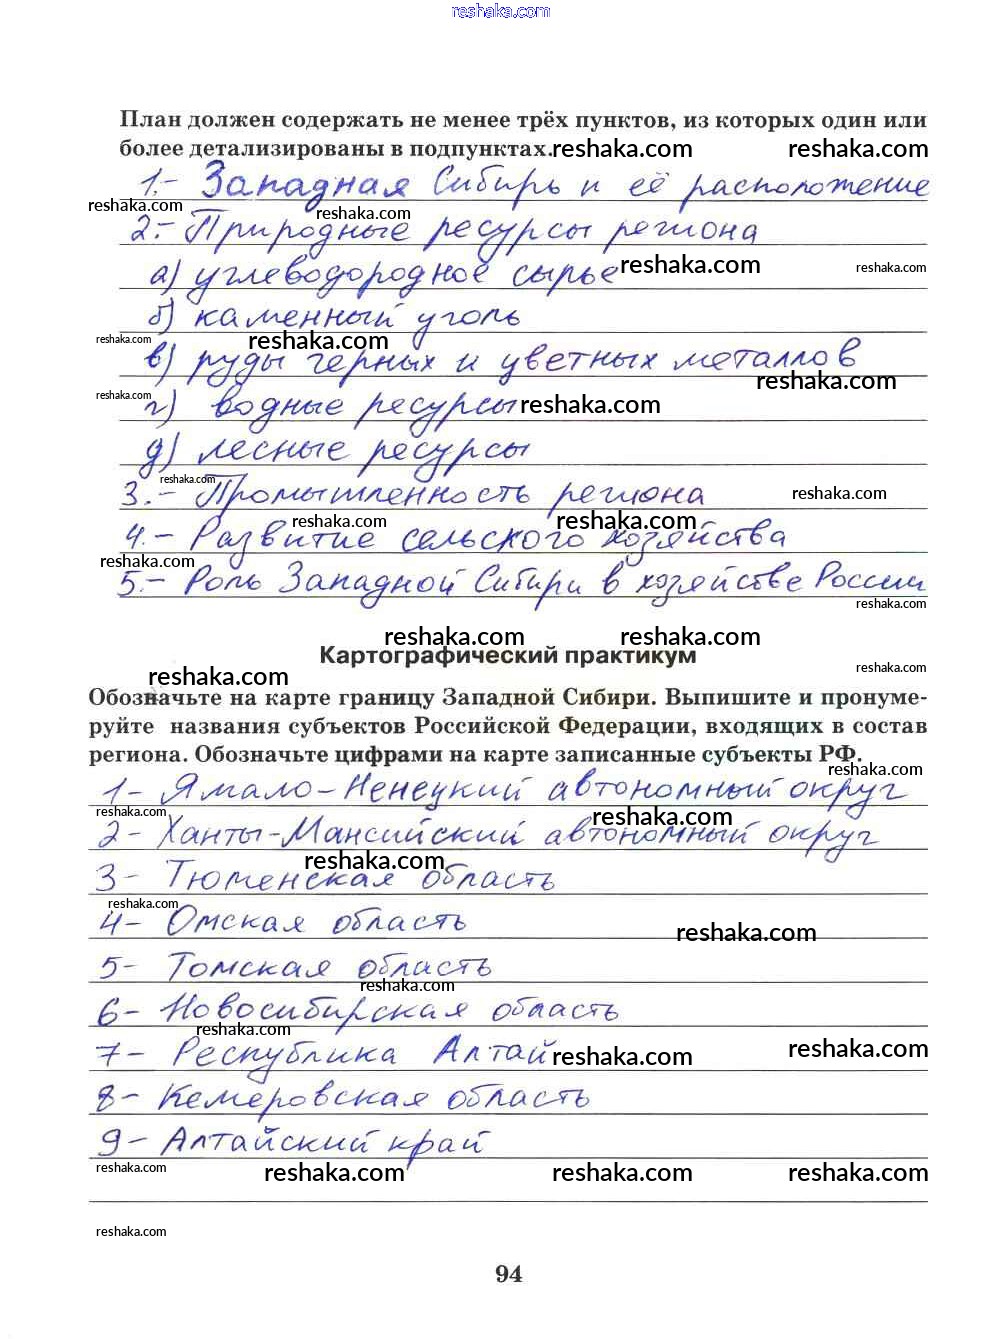 reshaka.com
План должен содержать не менее трёх пунктов, из которых один или
более детализированы в подпунктах. reshaka.com reshaka.com
1.- Западная Сибирь и её расположение
reshaka.com reshaka.com
2.- Природные ресурсы региона
а) углеводородное сырье reshaka.com reshaka.com
б) каменный уголь
reshaka.com reshaka.com
в) руды черных и цветных металлов
reshaka.com reshaka.com
г) водные ресурсы reshaka.com
д) лесные ресурсы
reshaka.com
3.- Промышленность региона reshaka.com
reshaka.com reshaka.com
4.- Развитие сельского хозяйства
reshaka.com
5.- Роль Западной Сибири в хозяйстве России
reshaka.com
reshaka.com reshaka.com
Картографический практикум
reshaka.com reshaka.com
Обозначьте на карте границу Западной Сибири. Выпишите и пронуме-
руйте названия субъектов Российской Федерации, входящих в состав
региона. Обозначьте цифрами на карте записанные субъекты РФ.
reshaka.com
1- Ямало-Ненецкий автономный округ
reshaka.com
2- Ханты-Мансийский автономный округ
reshaka.com
3- Тюменская область
reshaka.com
4- Омская область reshaka.com
5- Томская область
reshaka.com
6- Новосибирская область
reshaka.com
7- Республика Алтай reshaka.com reshaka.com
8- Кемеровская область
9- Алтайский край
reshaka.com reshaka.com reshaka.com reshaka.com
reshaka.com
94